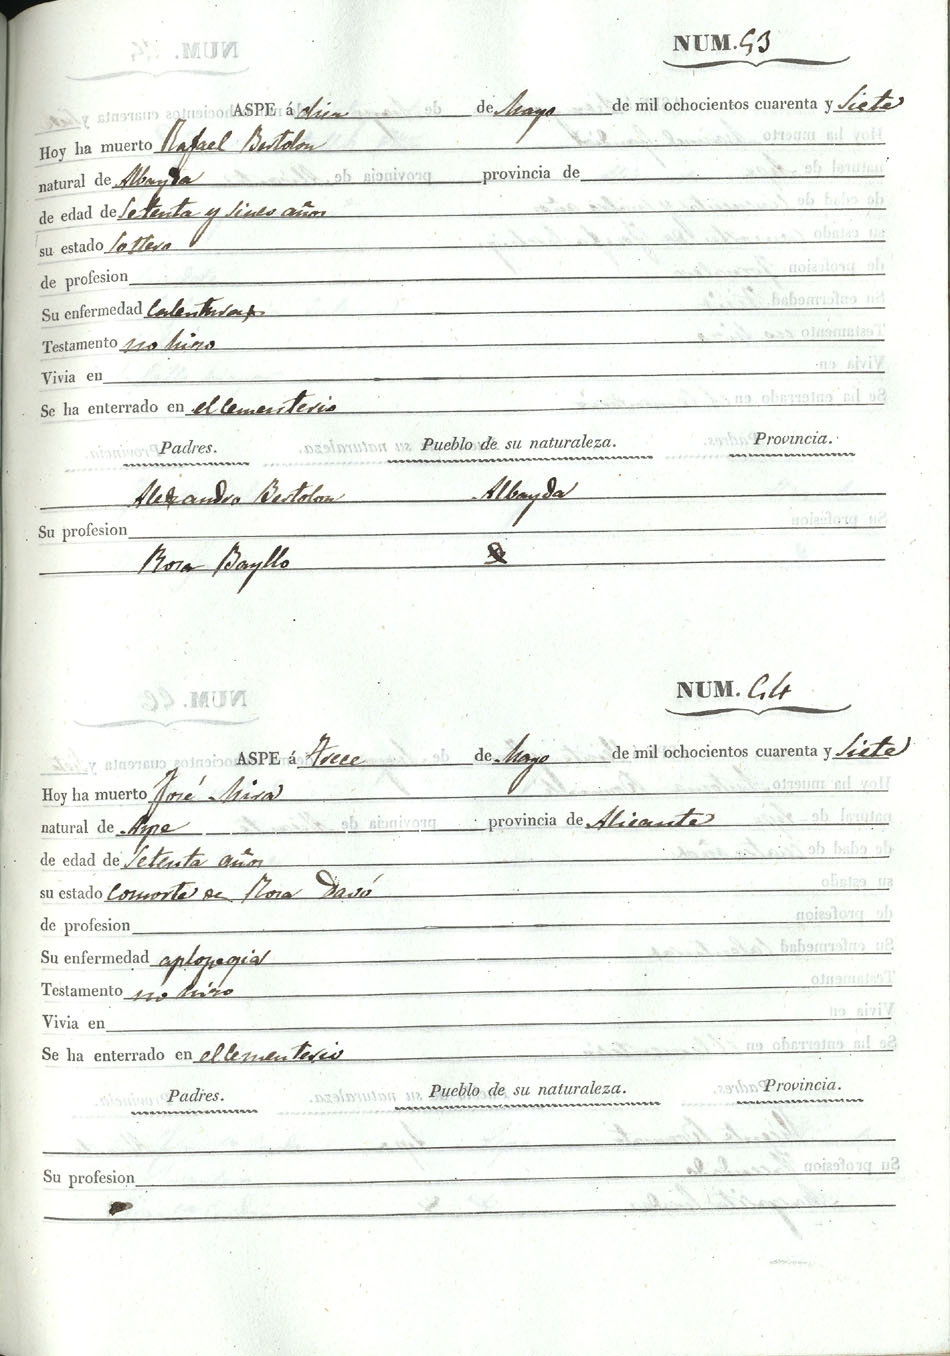 NUM. 43
ASPE á diez de Mayo de mil ochocientos cuarenta y Siete
Hoy ha muerto Rafael Bertolon
natural de Albayda provincia de
de edad de Setenta y sinco años
su estado Soltero
de profesion
Su enfermedad Calenturas
Testamento no hizo
Vivia en
Se ha enterrado en el Cementerio
Padres. Pueblo de su naturaleza. Provincia.
Alexandro Bertolon Albayda
Su profesion
Rosa Bayllo
NUM. 44
ASPE á trece de Mayo de mil ochocientos cuarenta y Siete
Hoy ha muerto José Mira
natural de Aspe provincia de Alicante
de edad de Setenta años
su estado Consorte de Rosa Davó
de profesion
Su enfermedad aplopegia
Testamento no hizo
Vivia en
Se ha enterrado en el Cementerio
Padres. Pueblo de su naturaleza. Provincia.
Su profesion